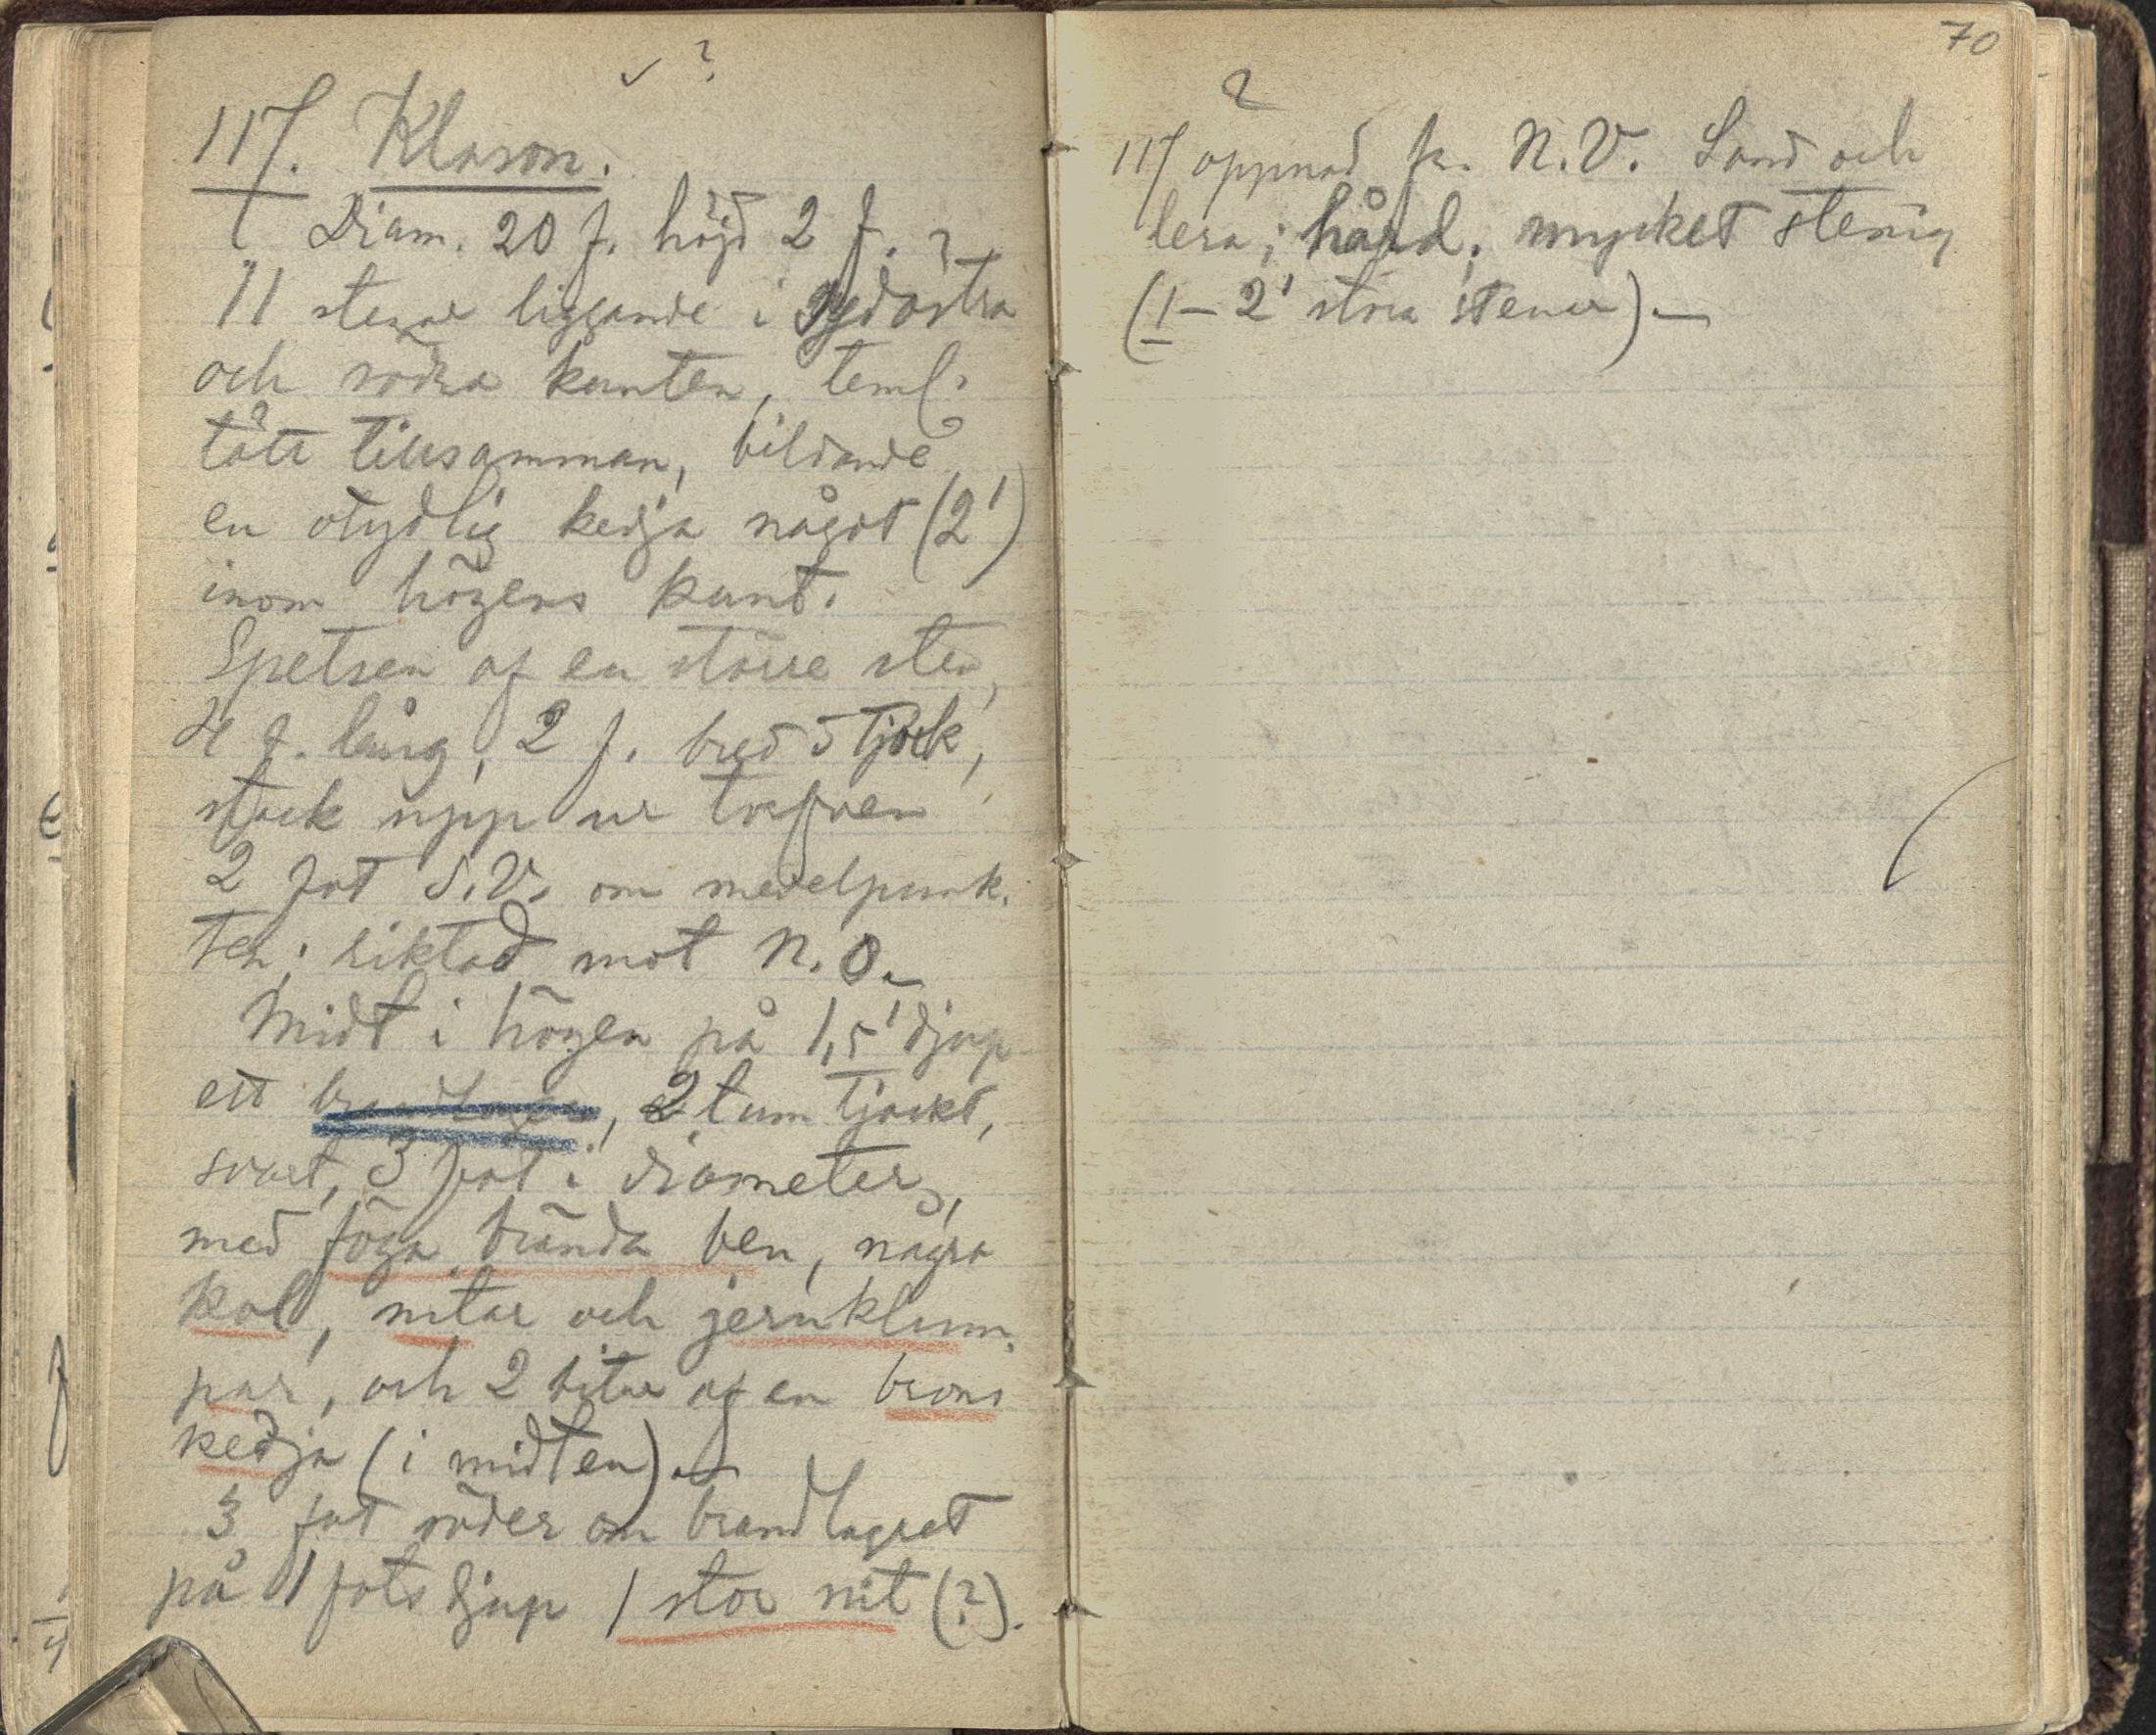 ✓ ?
117. Klason.
Diam. 20 f. höjd 2 f.
11 stenar liggande i sydöstra
och södra kanten, teml.
tätt tillsamman, bildande
en otydlig kedja något (2')
inom högens kant.
Spetsen af en större sten,
4 f. lång, 2 f. bred o tjock,
stack upp ur torfven
2 fot S.V. om medelpunk-
ten; riktad mot N.O.
Midt i högen på 1,5' djup
ett brandlager, 2 tum tjockt,
svart, 3 fot i diameter,
med föga brända ben, några
kol, nitar och jernklum-
par, och 2 bitar af en brons
kedja (i midten).—
3 fot söder om brandlagret
på 1 fots djup 1 stor nit (?).
70
?
117 öppnad fr. N.V. Sand och
lera; hård; mycket stenig
(1–2' stora stenar).—